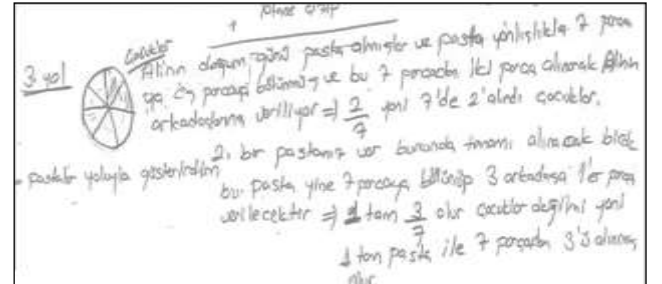 1
3 yol
Çocuklar
Alinin doğum günü pasta almışlar ve pasta yanlışlıkla 7 parça
ya parçaya bölünmüş ve bu 7 parçadan iki parça alınarak Alinin
arkadaşlarına veriliyor ⇒ 2/7 yani 7'de 2'alındı çocuklar.
2. bir pastamız var bununda tamamı alınacak
- pastalar yoluyla gösterirdim
bu pasta yine 7 parçaya bölünüp 3 arkadaşa 1'er parça
verilecektir ⇒ 1 tam 3/7 olur çocuklar değilmi yani
1 tam pasta ile 7 parçadan 3'ü alınmış
olur